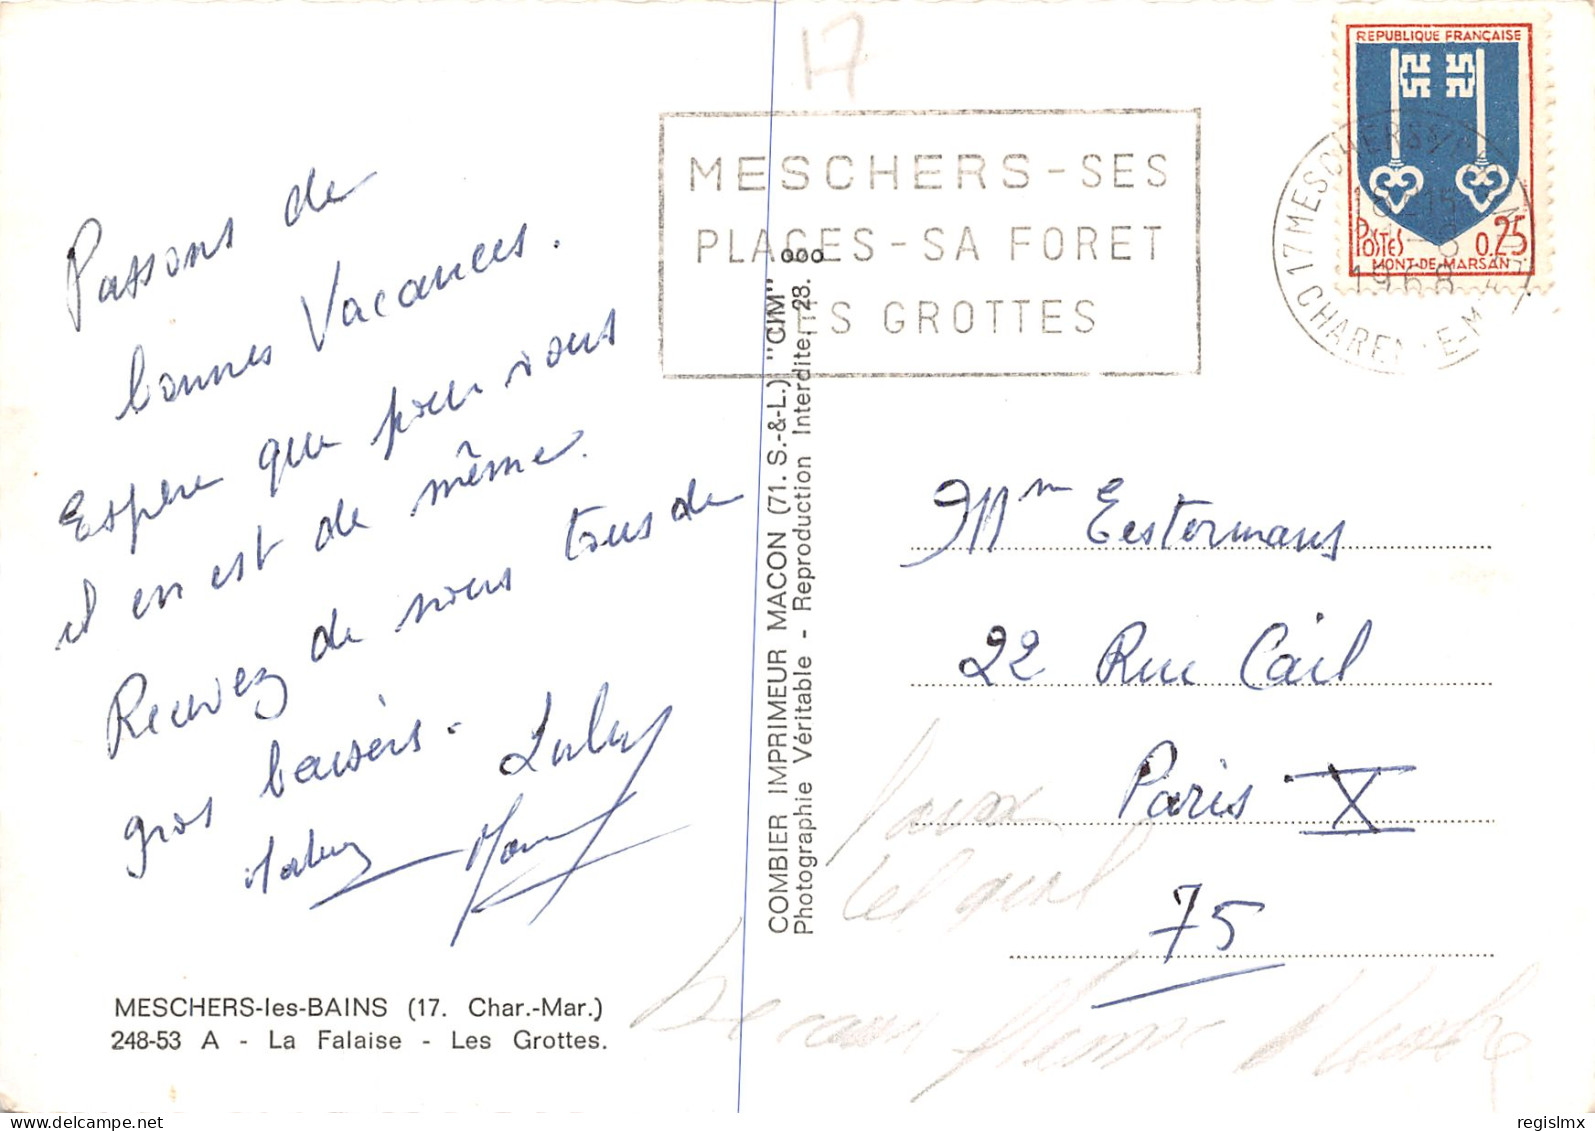 Passons de
bonnes Vacances.
Espère que pour vous
il en est de même.
Recevez de nous tous de
gros baisers.
MESCHERS-les-BAINS (17. Char.-Mar.)
248-53 A - La Falaise - Les Grottes.
COMBIER IMPRIMEUR MACON (71. S.-&-L.) "CIM"
Photographie Véritable - Reproduction Interdite, 28.
17
MESCHERS - SES
PLAGES - SA FORET
SES GROTTES
REPUBLIQUE FRANÇAISE
POSTES 0,25
MONT-DE-MARSAN
17 MESCHERS
1968
Mme Eestermans
22 Rue Cail
Paris X
75
regislmx